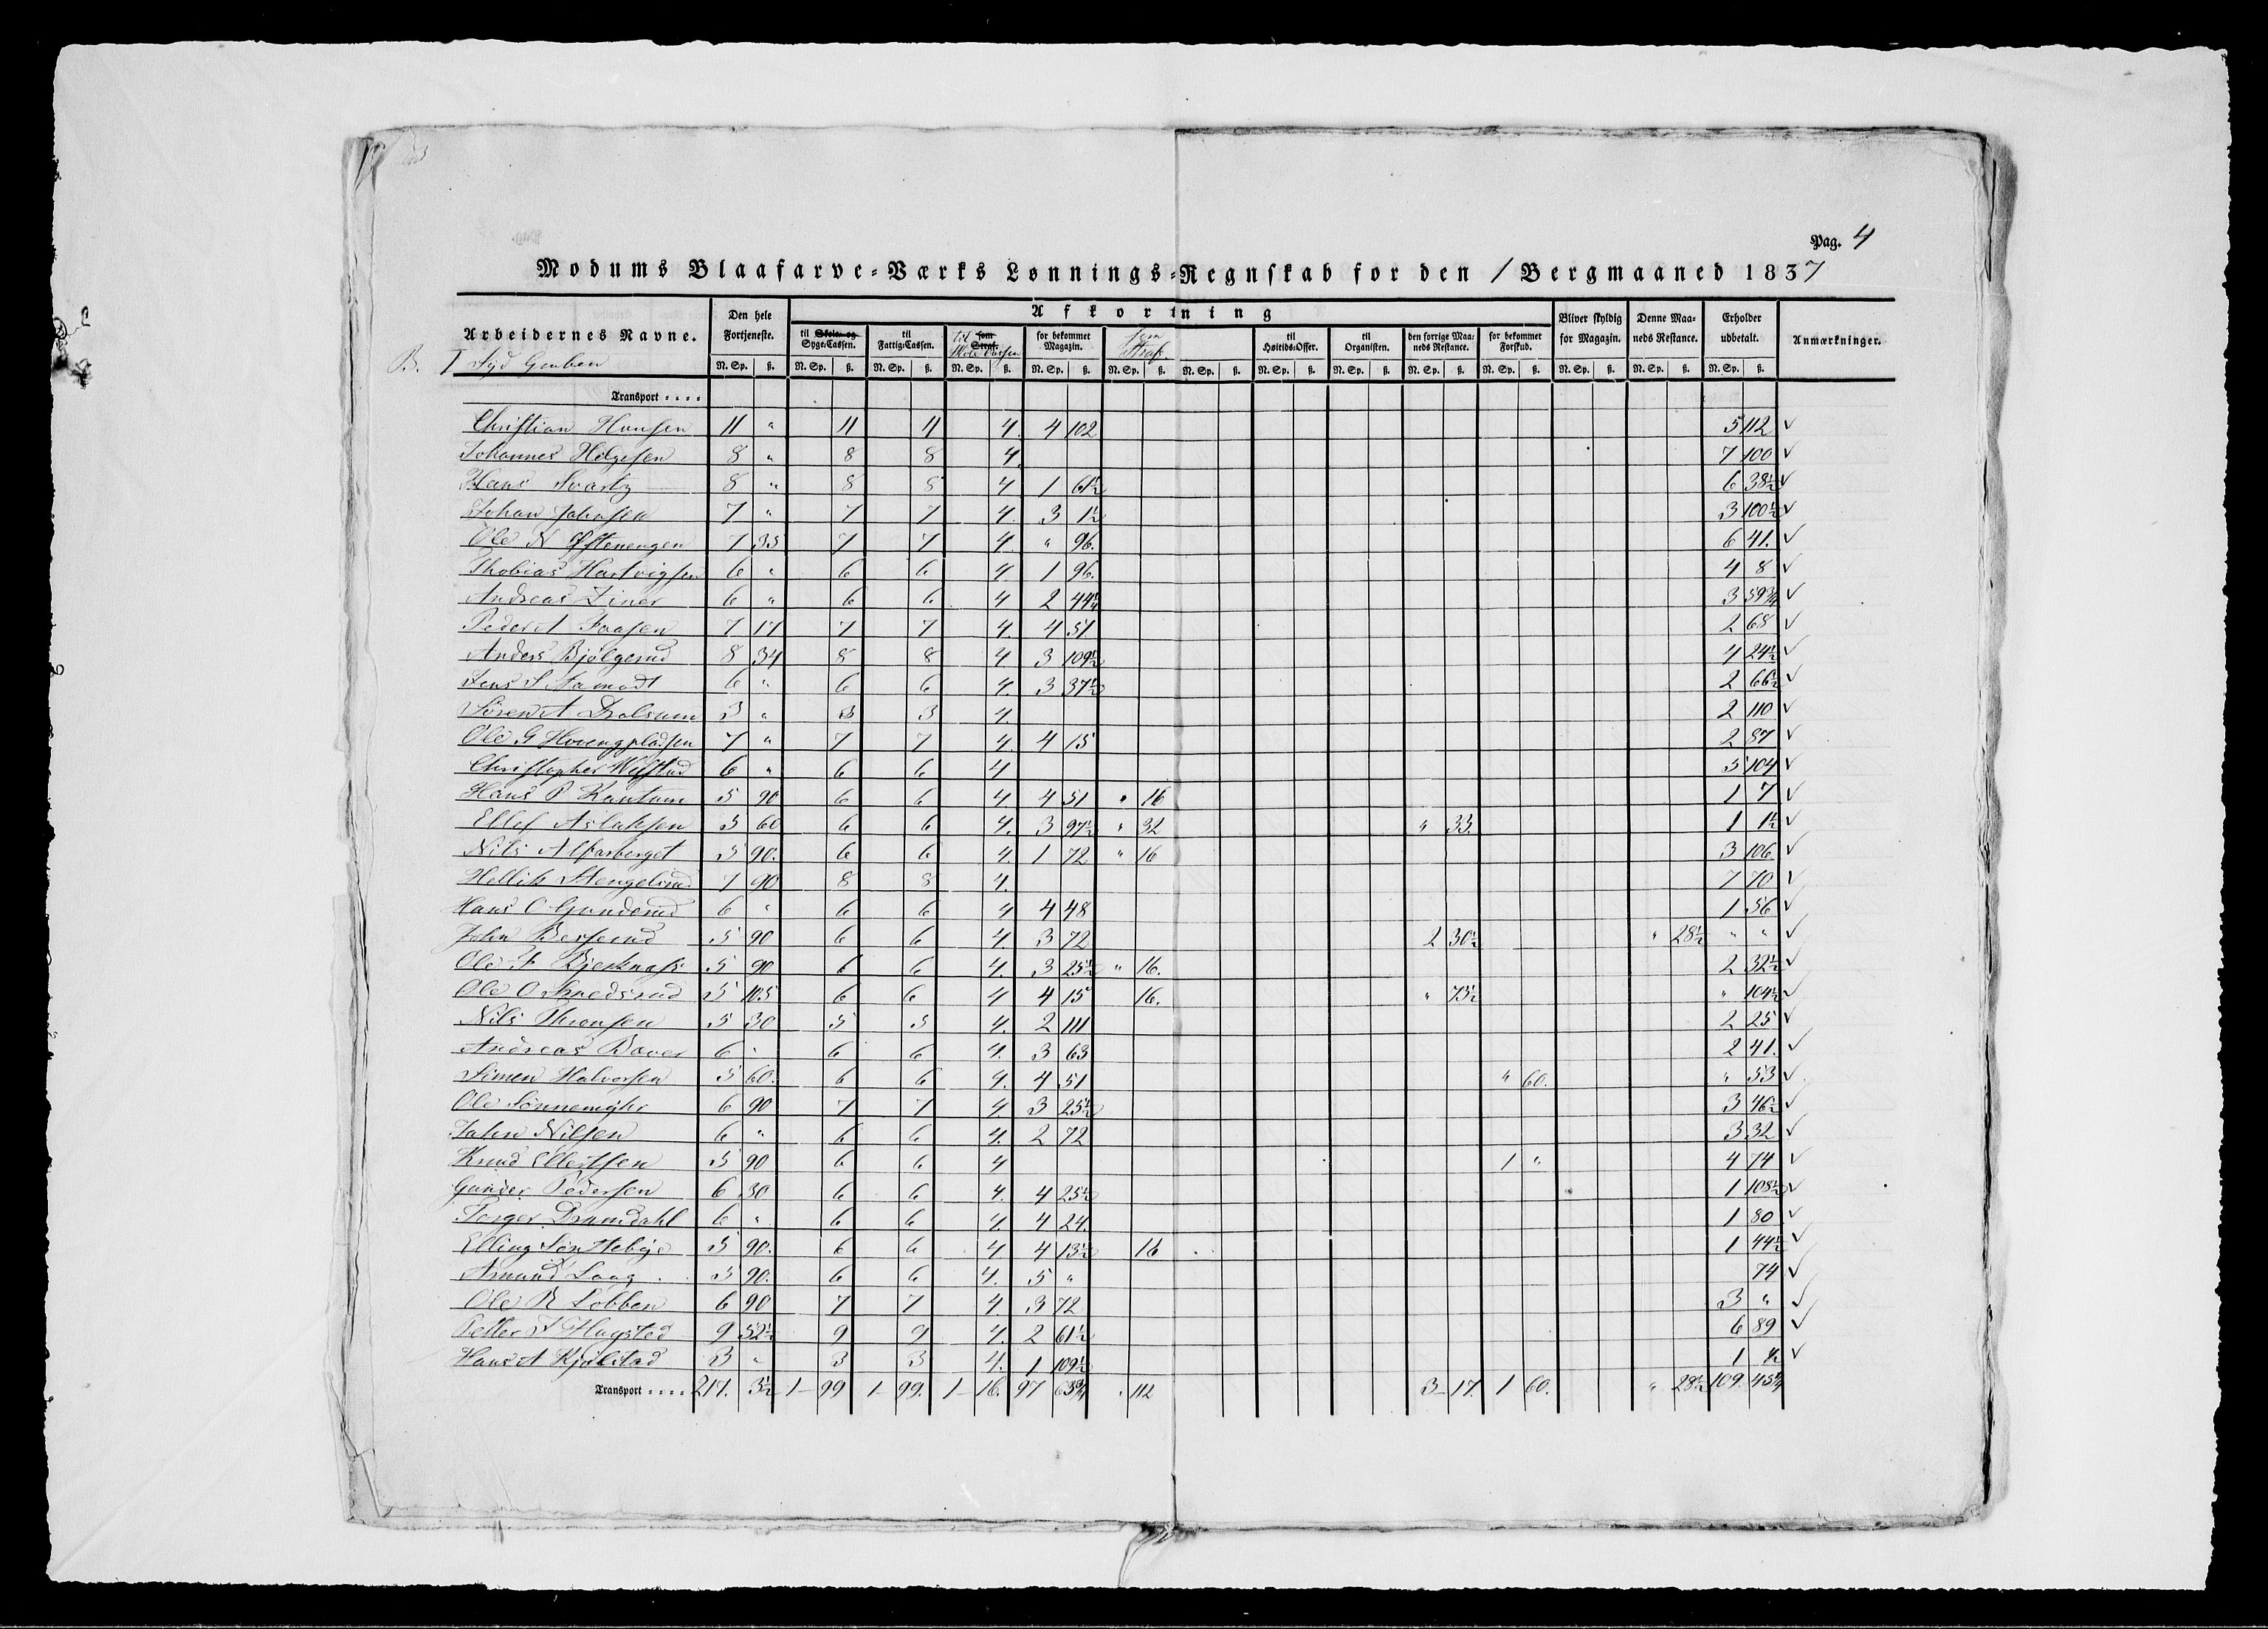 Pag. 4
Modums Blaafarve-Værks Lønnings-Regnskab for den 1 Bergmaaned 1837
Arbeidernes Navne. Den hele Fortjeneste. Afkortning Bliver skyldig for Magazin. Denne Maaneds Restance. Erholder udbetalt. Anmærkninger.
til Skole- og Syge-Cassen. til Fattig-Cassen. til som Straf. Skole Cassen for bekommet Magazin. som Straf til Høitids-Offer. til Organisten. den forrige Maaneds Restance. for bekommet Forskud.
B. I Syd Gruben
N. Sp. ß. N. Sp. ß. N. Sp. ß. N. Sp. ß. N. Sp. ß. N. Sp. ß. N. Sp. ß. N. Sp. ß. N. Sp. ß. N. Sp. ß. N. Sp. ß. N. Sp. ß. N. Sp. ß. N. Sp. ß.
Transport ....
Christian Hansen 11 " 11 11 4. 4 102 5 112 ✓
Johannes Helgesen 8 " 8 8 4. 7 100 ✓
Hans Svartz 8 " 8 8 4 1 61½ 6 38½ ✓
Johan Johnsen 7 " 7 7 4. 3 1½ 3 100½ ✓
Ole N Østenengen 7 35 7 7 4. " 96. 6 41. ✓
Thobias Hartvigsen 6 " 6 6 4. 1 96. 4 8 ✓
Andreas Ziner 6 " 6 6 4 2 44¼ 3 59¾ ✓
Peder A Faasen 7 17 7 7 4. 4 51 2 68 ✓
Anders Bjølgerud 8 34 8 8 4 3 109½ 4 24½ ✓
Jens S Aamodt 6 " 6 6 4. 3 37½ 2 66½ ✓
Søren A Drolsum 3 " 3 3 4 2 110 ✓
Ole G Hovengpladsen 7 " 7 7 4. 4 15 2 87 ✓
Christopher 6 " 6 6 4 5 104 ✓
Hans P 5 90 6 6 4 4 51 " 16 1 7 ✓
Ellef Aslaksen 5 60 6 6 4. 3 97½ " 32 " 33. 1 1½ ✓
Nils 5 90. 6 6 4. 1 72 " 16 3 106 ✓
Hellik Stengelsrud 7 90 8 8 4. 7 70 ✓
Hans O Gunderud 6 " 6 6 4 4 48 1 56 ✓
John 5 90 6 6 4. 3 72 2 30½ " 28½ " " ✓
Ole F 5 90 6 6 4. 3 25½ " 16. 2 32½ ✓
Ole O 5 105 6 6 4 4 15 16. " 73½ " 104½ ✓
Nils Thronsen 5 30 5 5 4. 2 111 2 25 ✓
Andreas Baver 6 " 6 6 4. 3 63 2 41. ✓
Simen Halvorsen 5 60. 6 6 4. 4 51 " 60. " 53 ✓
Ole 6 90 7 7 4. 3 25½ 3 46½ ✓
John Nilsen 6 " 6 6 4. 2 72 3 32 ✓
Knud Ellertsen 5 90 6 6 4 1 " 4 74 ✓
Gunder Pedersen 6 30 6 6 4. 4 25½ 1 108½ ✓
Torger Dramdahl 6 " 6 6 4. 4 24. 1 80 ✓
Elling 5 90. 6 6 4 4 13½ 16 1 44½ ✓
Amund Laag 5 90. 6 6 4. 5 " 74 ✓
Ole R Lobben 6 90 7 7 4. 3 72 3 " ✓
Petter A Hagsted 9 52½ 9 9 4. 2 61½ 6 89 ✓
Hans A Kjølstad 3 " 3 3 4. 1 109½ 1 ½ ✓
Transport .... 217. 3½ 1 99 1 99. 1 16. 97 63¾ " 112 3 17. 1 60. " 28½ 109. 45¾